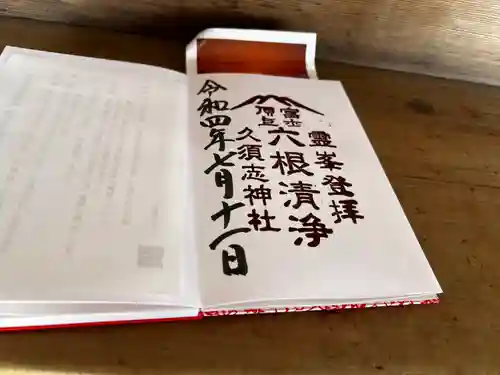 霊峯登拝
富士
頂上
六根清浄
久須志神社
令和四年七月十一日